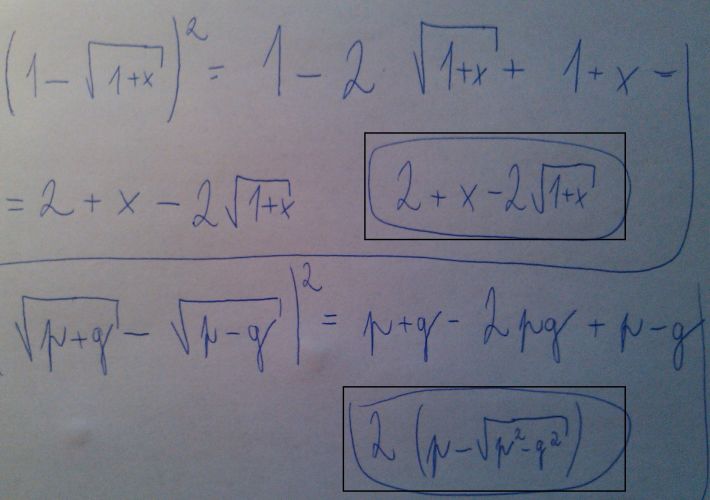 (1 - √(1+x))² = 1 - 2 √(1+x) + 1+x =
= 2 + x - 2√(1+x)    2 + x - 2√(1+x)
√(p+q) - √(p-q) |² = p+q - 2pq + p-q
2 (p - √(p²-q²))